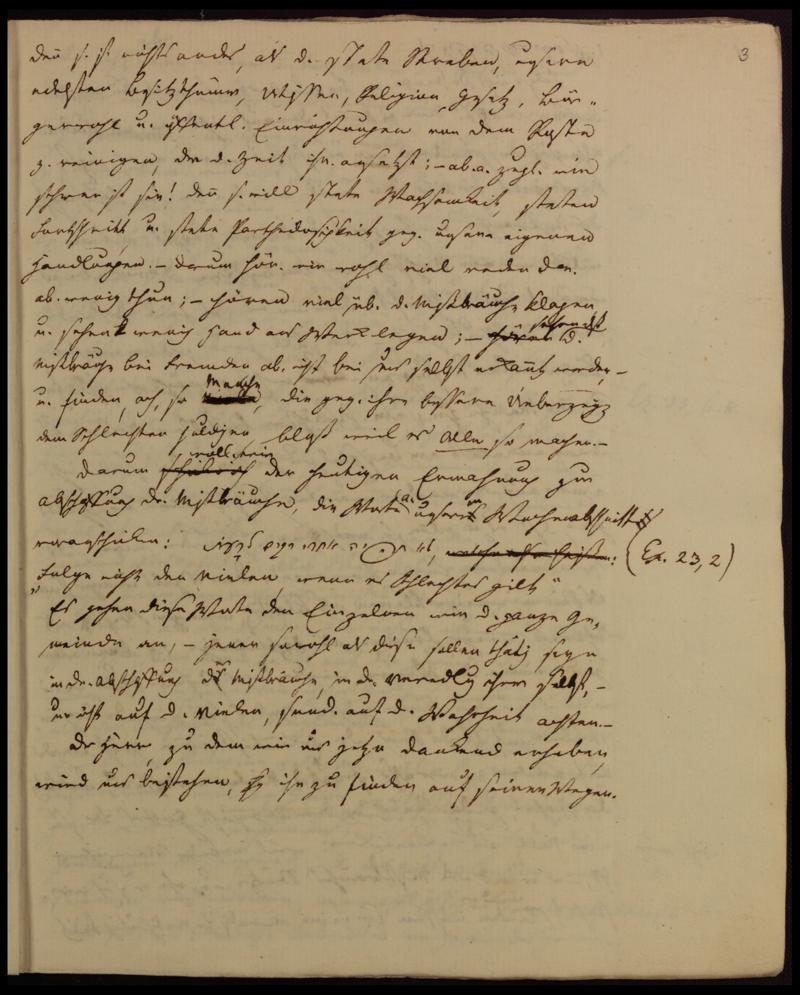 3
den s. ist nichts anders, als d. stete Streben, unsere
edelsten Besitzthümer, Wissen, Religion, Gesetz, Bür-
gerwohl u. öffentl. Einrichtungen von dem Roste
z. reinigen, den d. Zeit ihn. ansetzt; – ab. a. zugl. wie
schwer ist sie! den s. will stete Wachsamkeit, steten
Fortschritt u. stete Partheilosigkeit geg. unsere eigenen
Handlungen. – Darum hör. wir wohl viel reden dav.
ab. wenig thun; – hören viel üb. d. Mißbräuche klagen
u. sehen wenig Hand ans Werk legen; – d.
Mißbräuche bei Fremden ab. nicht bei uns selbst erkannt werden, –
u. finden, ach, so Manche, die geg. ihre bessere Ueberzeugg
dem Schlechten huldigen, bloß weil es Alle so machen. –
Darum woll. wir der heutigen Ermahnung zur
Abschaffung der Mißbräuche, die Worte a. unserem Wochenabschnitt
voranschicken: (Ex. 23, 2)
„Folge nicht den Vielen, wenn es Schlechtes gilt“
Es gehen diese Worte den Einzelnen wie d. ganze Ge-
meinde an, – jener sowohl als diese sollen thätig seyn
in der Abschaffung der Mißbräuche, in der Veredlg ihrer selbst, –
nicht auf d. Vielen, sond. auf d. Wahrheit achten. –
Der Herr, zu dem wir uns jetzo dankend erheben,
wird uns beistehen, ihn zu finden auf seinen Wegen.